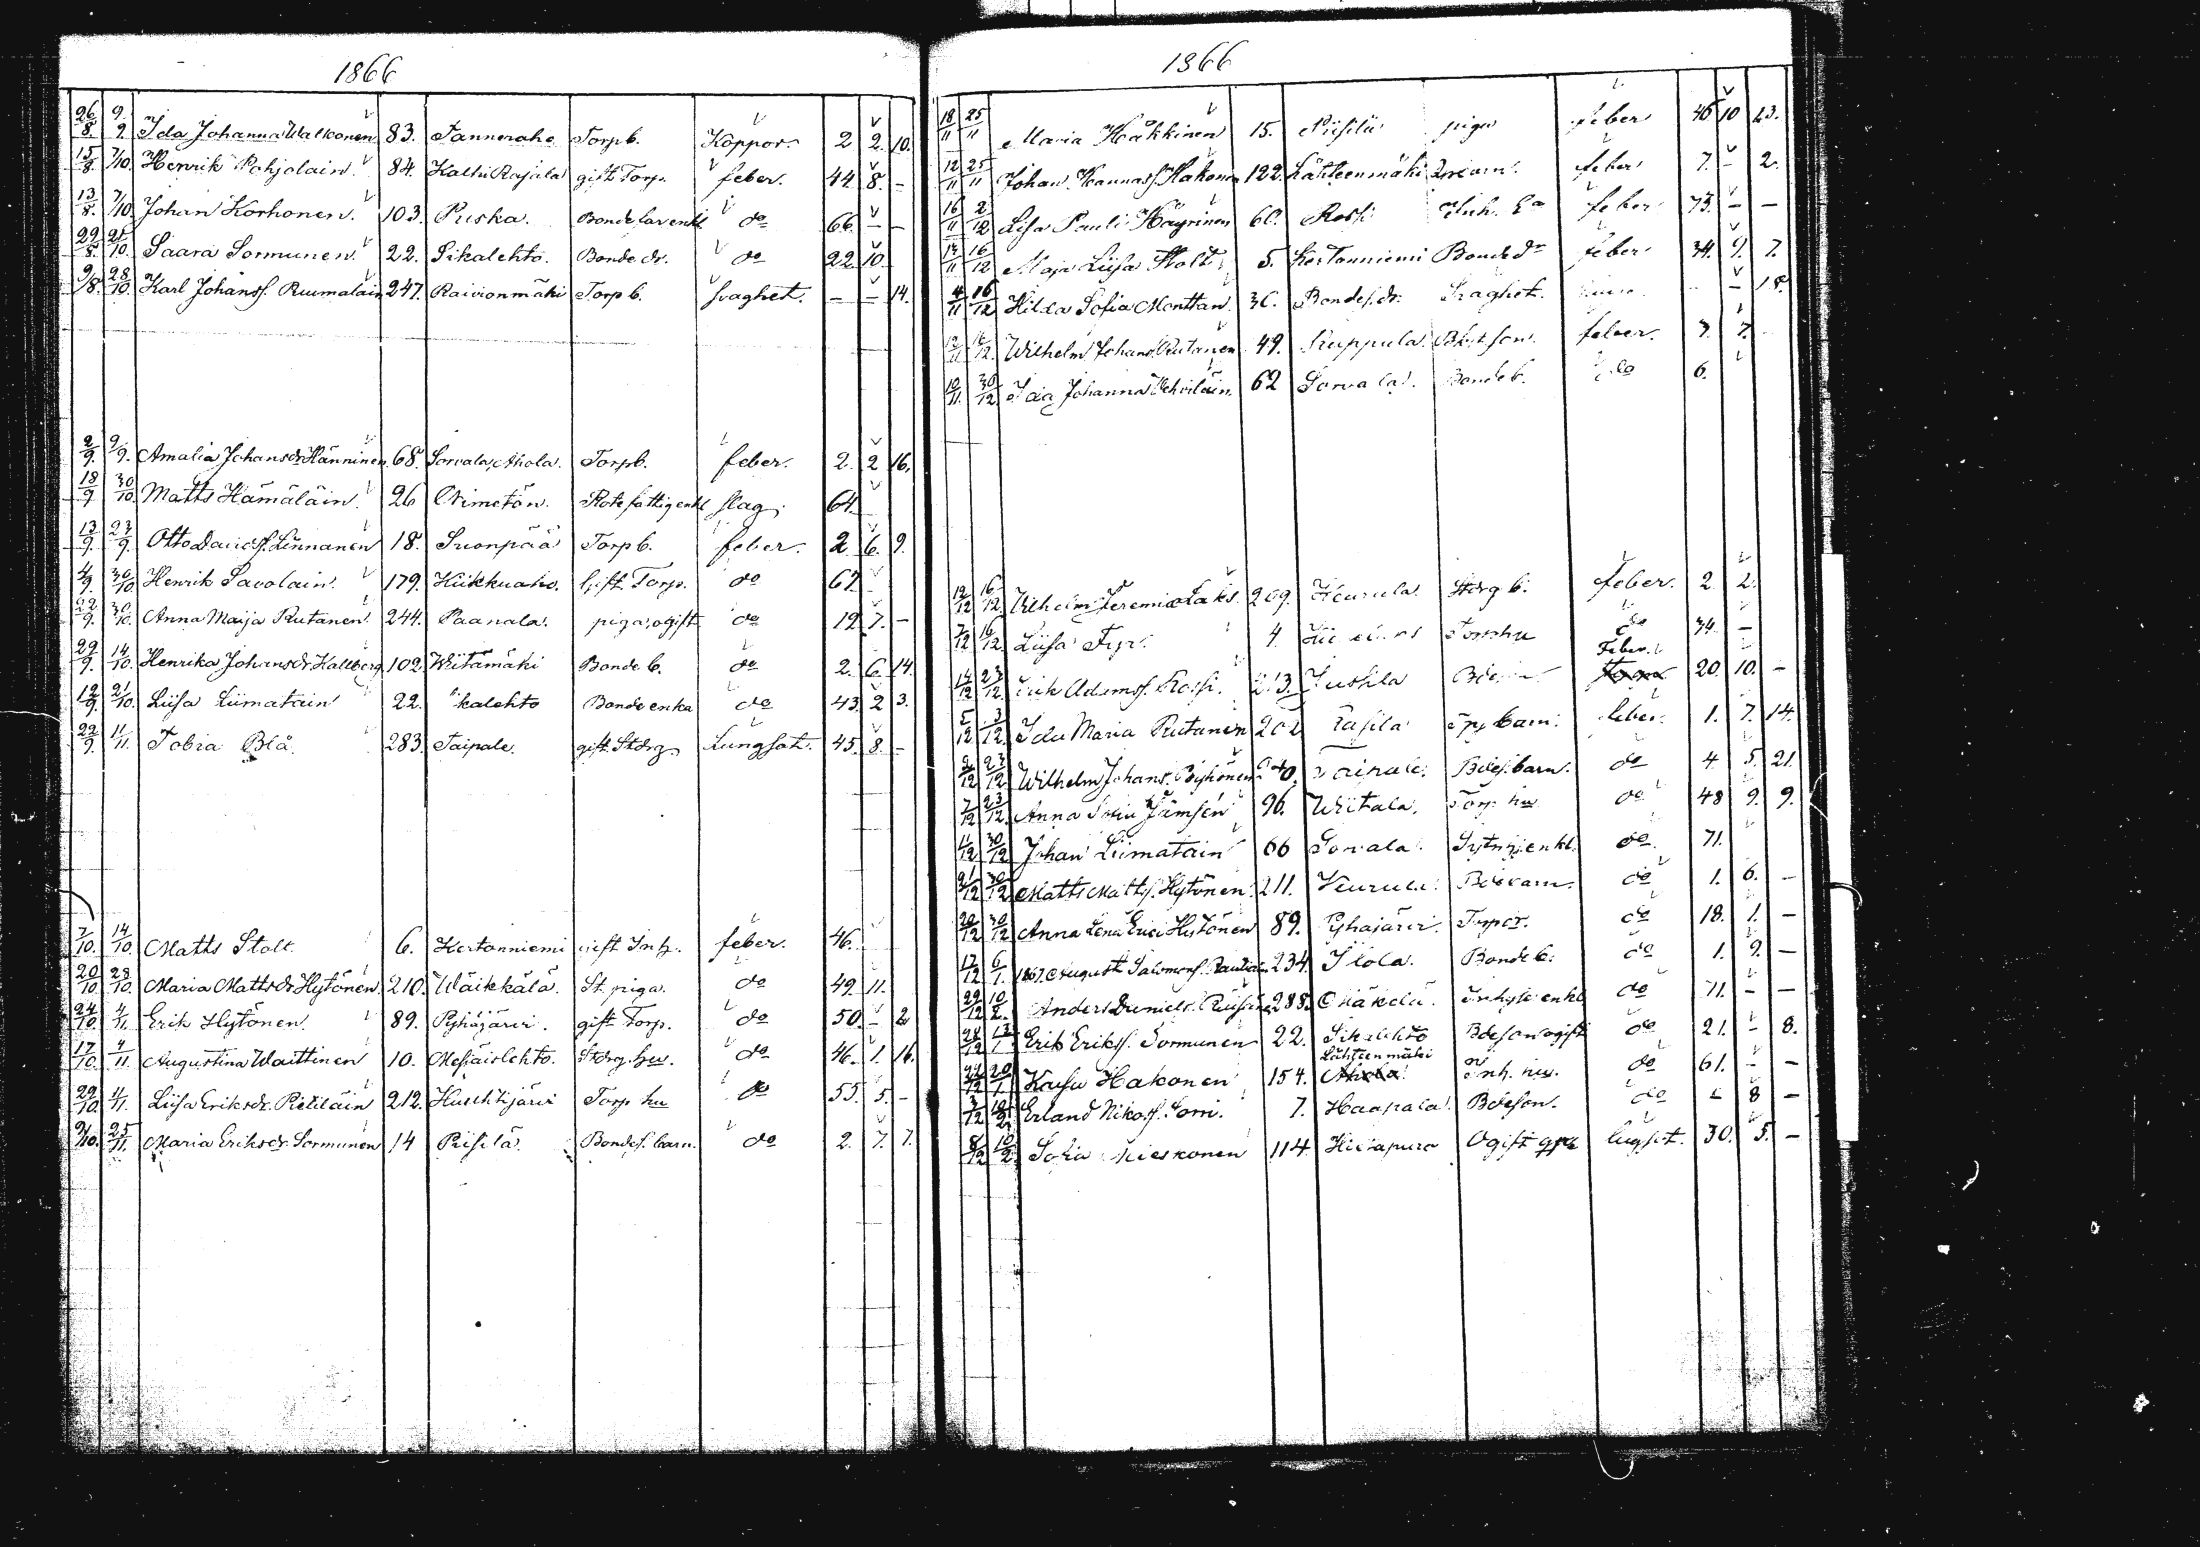 1866
26/8. 9/9. Ida Johanna Walkonen 83. Tannerahe Torpb. Koppor. 2 2. 10.
15/8. 7/10. Henrik Pohjolain. 84. Kalhi Rajala gift Torp. feber. 44. 8. –
13/8. 7/10. Johan Korhonen. 103. Puska. Bondefar enkl do 66. – –
29/8. 21/10. Saara Sormunen. 22. Sikalehto. Bonde dr. do 22. 10.
9/8. 28/10. Karl Johanss. Ruumalain 247. Raivionmäki Torpb. svaghet. – – 14.
2/9. 9/9. Amalia Johansdr Hänninen 68. Sorvala, Ahola. Torpb. feber. 2. 2 16.
18/9 30/10. Matts Hämäläin. 26 Nimetön. Rotefattigenkl slag. 64.
13/9. 23/9. Otto Davidss. Linnanen 18. Suonpää Torpb. feber. 2. 6. 9.
4/9. 30/10. Henrik Savolain. 179. Kiikkuaho. Gift Torp. do 67.
22/9. 30/10. Anna Maija Rutanen. 244. Paanala. piga, ogift do 19. 7. –
29/9. 14/10. Henrika Johansdr Kallberg 102. Wiitamäki Bonde b. do 2. 6. 14.
12/9. 21/10. Liisa Liimatain 22. Sikalehto Bonde enka do 43. 2 3.
22/9. 11/11. Tobia Blå. 283. Taipale. gift Stdrg. Lungsot. 45. 8. –
7/10. 14/10. Matts Stolt. 6. Hertonniemi gift Inh. feber. 46.
20/10 28/10. Maria Mattsdr Hytönen. 210. Wäikkälä. St. piga. do 49. 11.
24/10. 4/11. Erik Hytönen. 89. Pyhäjärvi. gift Torp. do 50. – 2
17/10. 4/11. Augustina Waittinen 10. Mesiäislehto. Stdrg. hu. do 46. 1. 16.
29/10. 4/11. Liisa Eriksdr. Pietiläin 212. Huuhtijärvi Torp hu do 55. 5. –
9/10. 25/11. Maria Eriksdr. Sormunen 14 Piisilä. Bondes. barn. do 2. 7. 7.
1866
18/11 25/11 Maria Häkkinen 15. Piisilä piga feber 46 10 23.
12/11 25/11 Johan Hannass. Hakonen 122. Lähteenmäki feber 7. – 2.
16/11 2/12 Lisa Pauli Häyrinen 60. Rossi Inh. Ea feber 73. – –
16/12 Maja Liisa Stolt 5. Hertonniemi Bonde dr feber 34. 9. 7.
4/11 16/12 Hilda Sofia Monttan 36. Bondes. dr. Svaghet. – 18.
Wilhelm Johans. Rutanen 49. Ruppula. son. feber. 7. 7.
30/12 Ida Johanna 62 Sorvala. Bonde b. do 6.
12/12 16/12 Wilhelm Jeremias 209. Keurula. Stdrg b. feber. 2. 2.
7/12 16/12 Liisa 4. Torp hu do 34. –
14/12 23/12 Erik Adamss. Rossi. 213. Jussila Feber. 20. 10. –
Ida Maria Rutanen 202 barn. feber. 1. 7. 14.
23/12 Wilhelm Johans. Pöyhönen 240. Taipale. Bdes. barn. do 4 5. 21.
7/12 23/12. Anna Sofia Jämsén 96. Wiitala. Torp. hu do 48 9. 9.
11/12 30/12 Johan Liimatain 66 Sorvala. enkl. do 71.
21/12 30/12 Matts Matts. Hytönen. 211. Keurula. Bdebarn. do 1. 6. –
20/12 30/12 Anna Lena Erici Hytönen 89. Pyhäjärvi. Torp dr. do 18. 1. –
17/12 6/1. 1867 August Salomons. 234. Ilola. Bonde b. do 1. 9. –
29/12 10/2. Anders Daniels. 288. Mäkelä. Inhyse enkl do 71. – –
28/12 13/1 Erik Erikss. Sormunen 22. Sikalehto Bdeson ogift do 21. – 8.
Lähteenmäki
22/12 20/1 Kaisa Hakonen 154. Inh. hu. do 61. – –
3/12 10/2 Erland Nikoss. 7. Haapala. Bdeson. do – 8 –
8/12 10/2 Sofia Mieskonen 114 Hietapuro Ogift lugsot. 30. 5. –